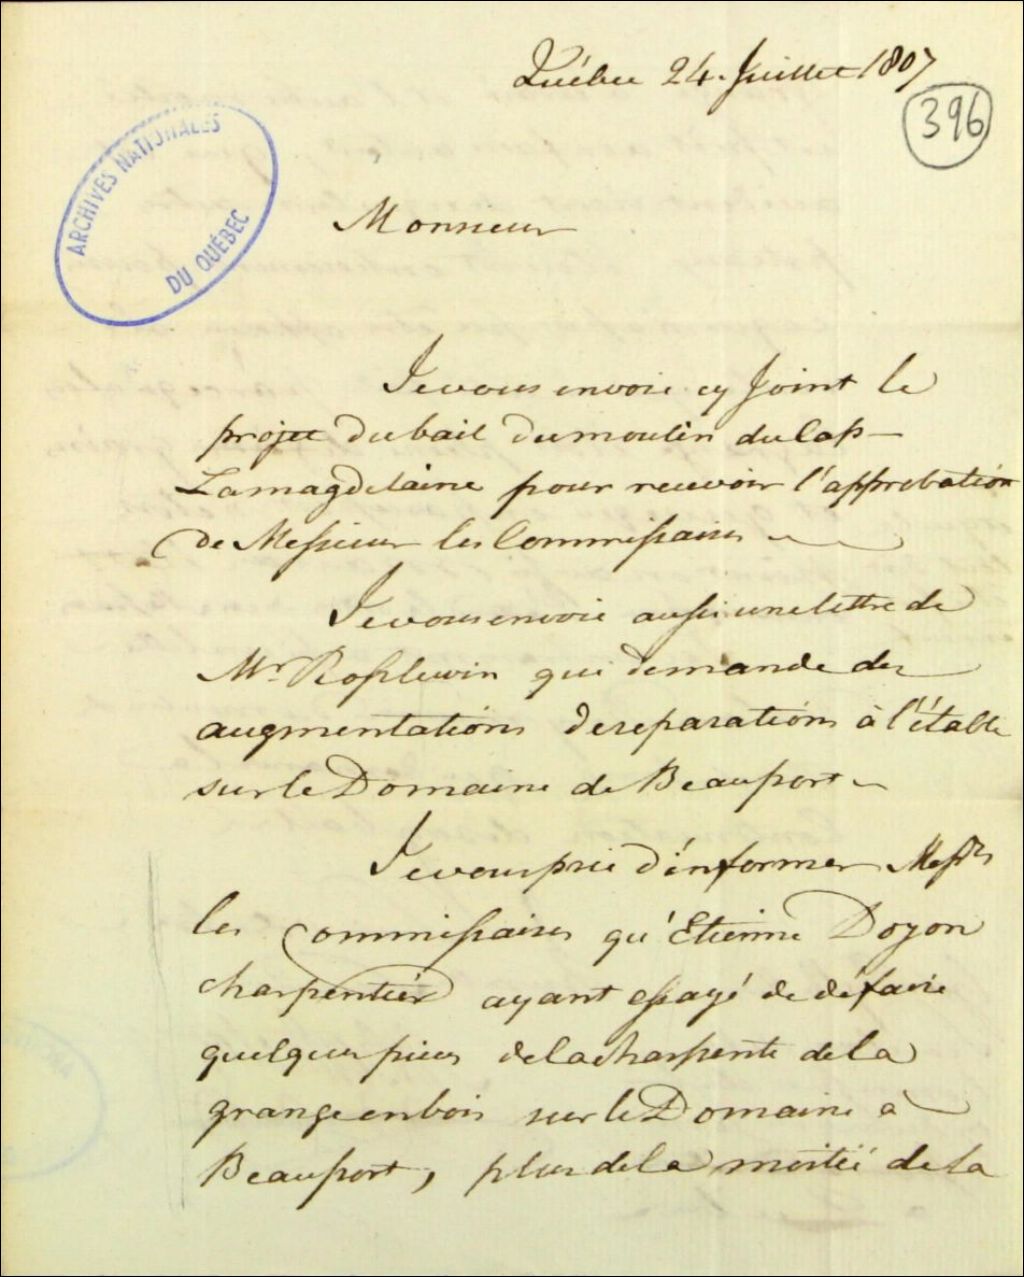 Québec 24. Juillet 1807
396
ARCHIVES NATIONALES
DU QUÉBEC
Monsieur
Je vous envoie cy Joint le
projet du bail du moulin du Cap-
Lamagdelaine pour recevoir l'approbation
de Messieurs les Commissaires
Je vous envoie aussi une lettre de
Mr. Rosslewin qui demande des
augmentations de reparations à l'étable
sur le Domaine de Beauport
Je vous prie d'informer Messrs
les Commissaires qu'Etienne Doyon
charpentier ayant essayé de défaire
quelques pieces de la charpente de la
grange en bois sur le Domaine à
Beauport, plus de la moitié de la